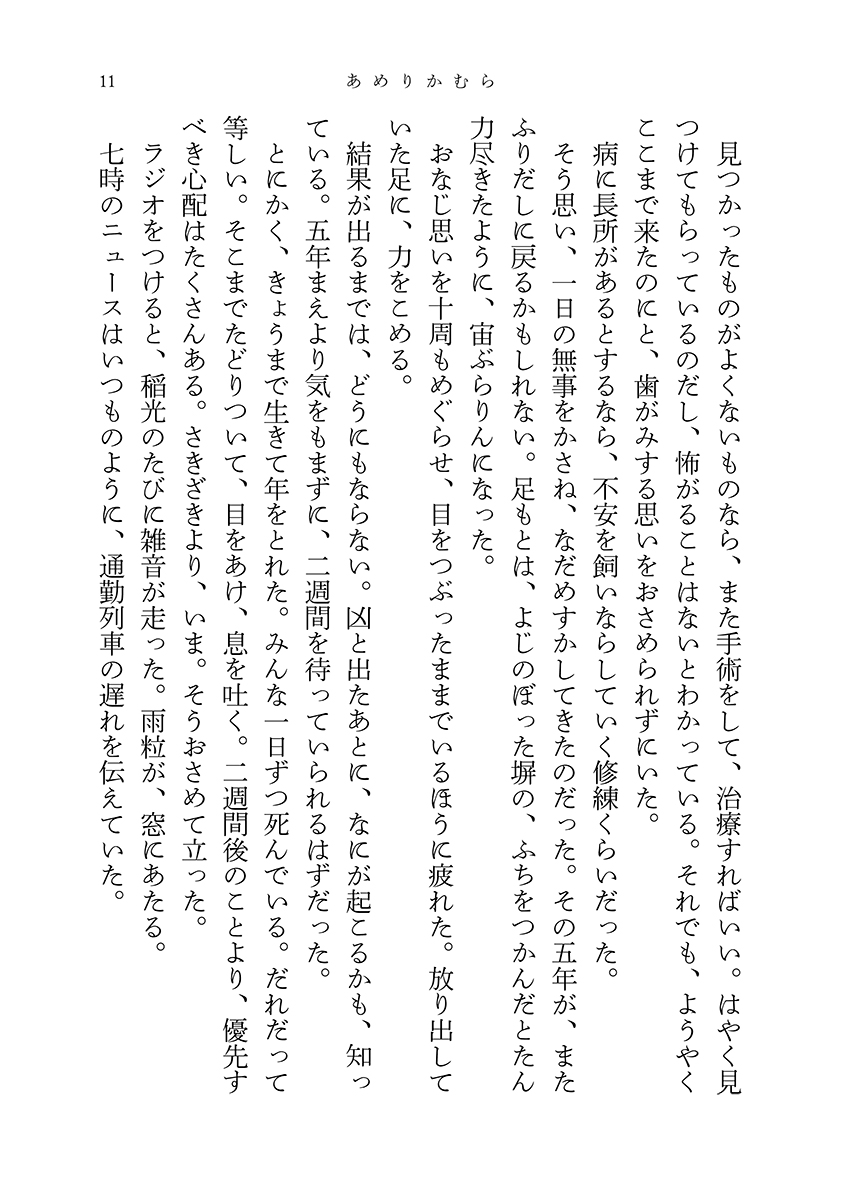 11
あめりかむら
見つかったものがよくないものなら、また手術をして、治療すればいい。はやく見
つけてもらっているのだし、怖がることはないとわかっている。それでも、ようやく
ここまで来たのにと、歯がみする思いをおさめられずにいた。
病に長所があるとするなら、不安を飼いならしていく修練くらいだった。
そう思い、一日の無事をかさね、なだめすかしてきたのだった。その五年が、また
ふりだしに戻るかもしれない。足もとは、よじのぼった塀の、ふちをつかんだとたん
力尽きたように、宙ぶらりんになった。
おなじ思いを十周もめぐらせ、目をつぶったままでいるほうに疲れた。放り出して
いた足に、力をこめる。
結果が出るまでは、どうにもならない。凶と出たあとに、なにが起こるかも、知っ
ている。五年まえより気をもまずに、二週間を待っていられるはずだった。
とにかく、きょうまで生きて年をとれた。みんな一日ずつ死んでいる。だれだって
等しい。そこまでたどりついて、目をあけ、息を吐く。二週間後のことより、優先す
べき心配はたくさんある。さきざきより、いま。そうおさめて立った。
ラジオをつけると、稲光のたびに雑音が走った。雨粒が、窓にあたる。
七時のニュースはいつものように、通勤列車の遅れを伝えていた。